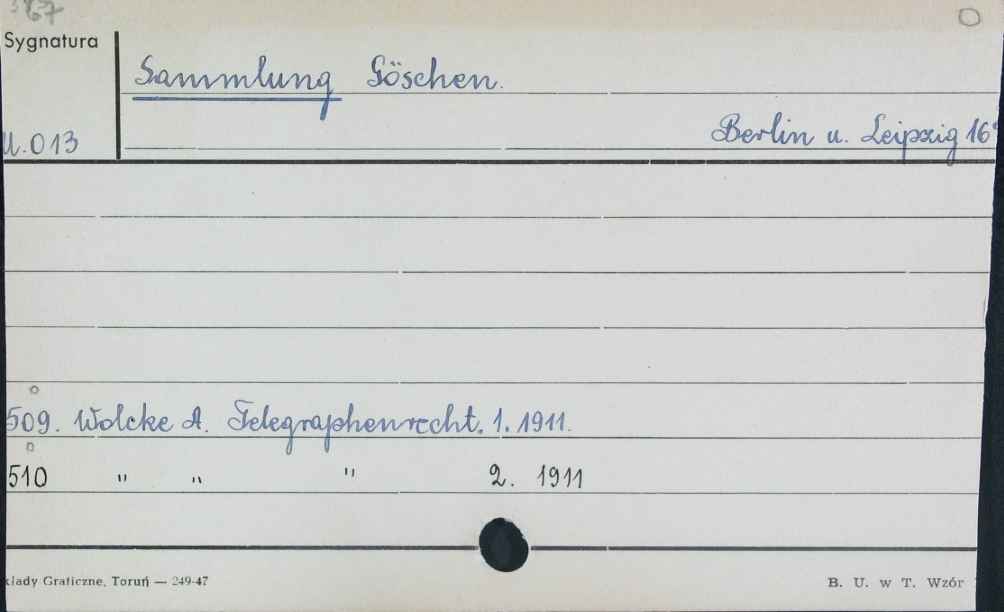 367
Sygnatura
Sammlung Göschen.
U.013
Berlin u. Leipzig 16°
509. Wolcke A. Telegraphenrecht. 1. 1911.
510 " " " 2. 1911
kłady Graficzne, Toruń — 249-47
B. U. w T. Wzór